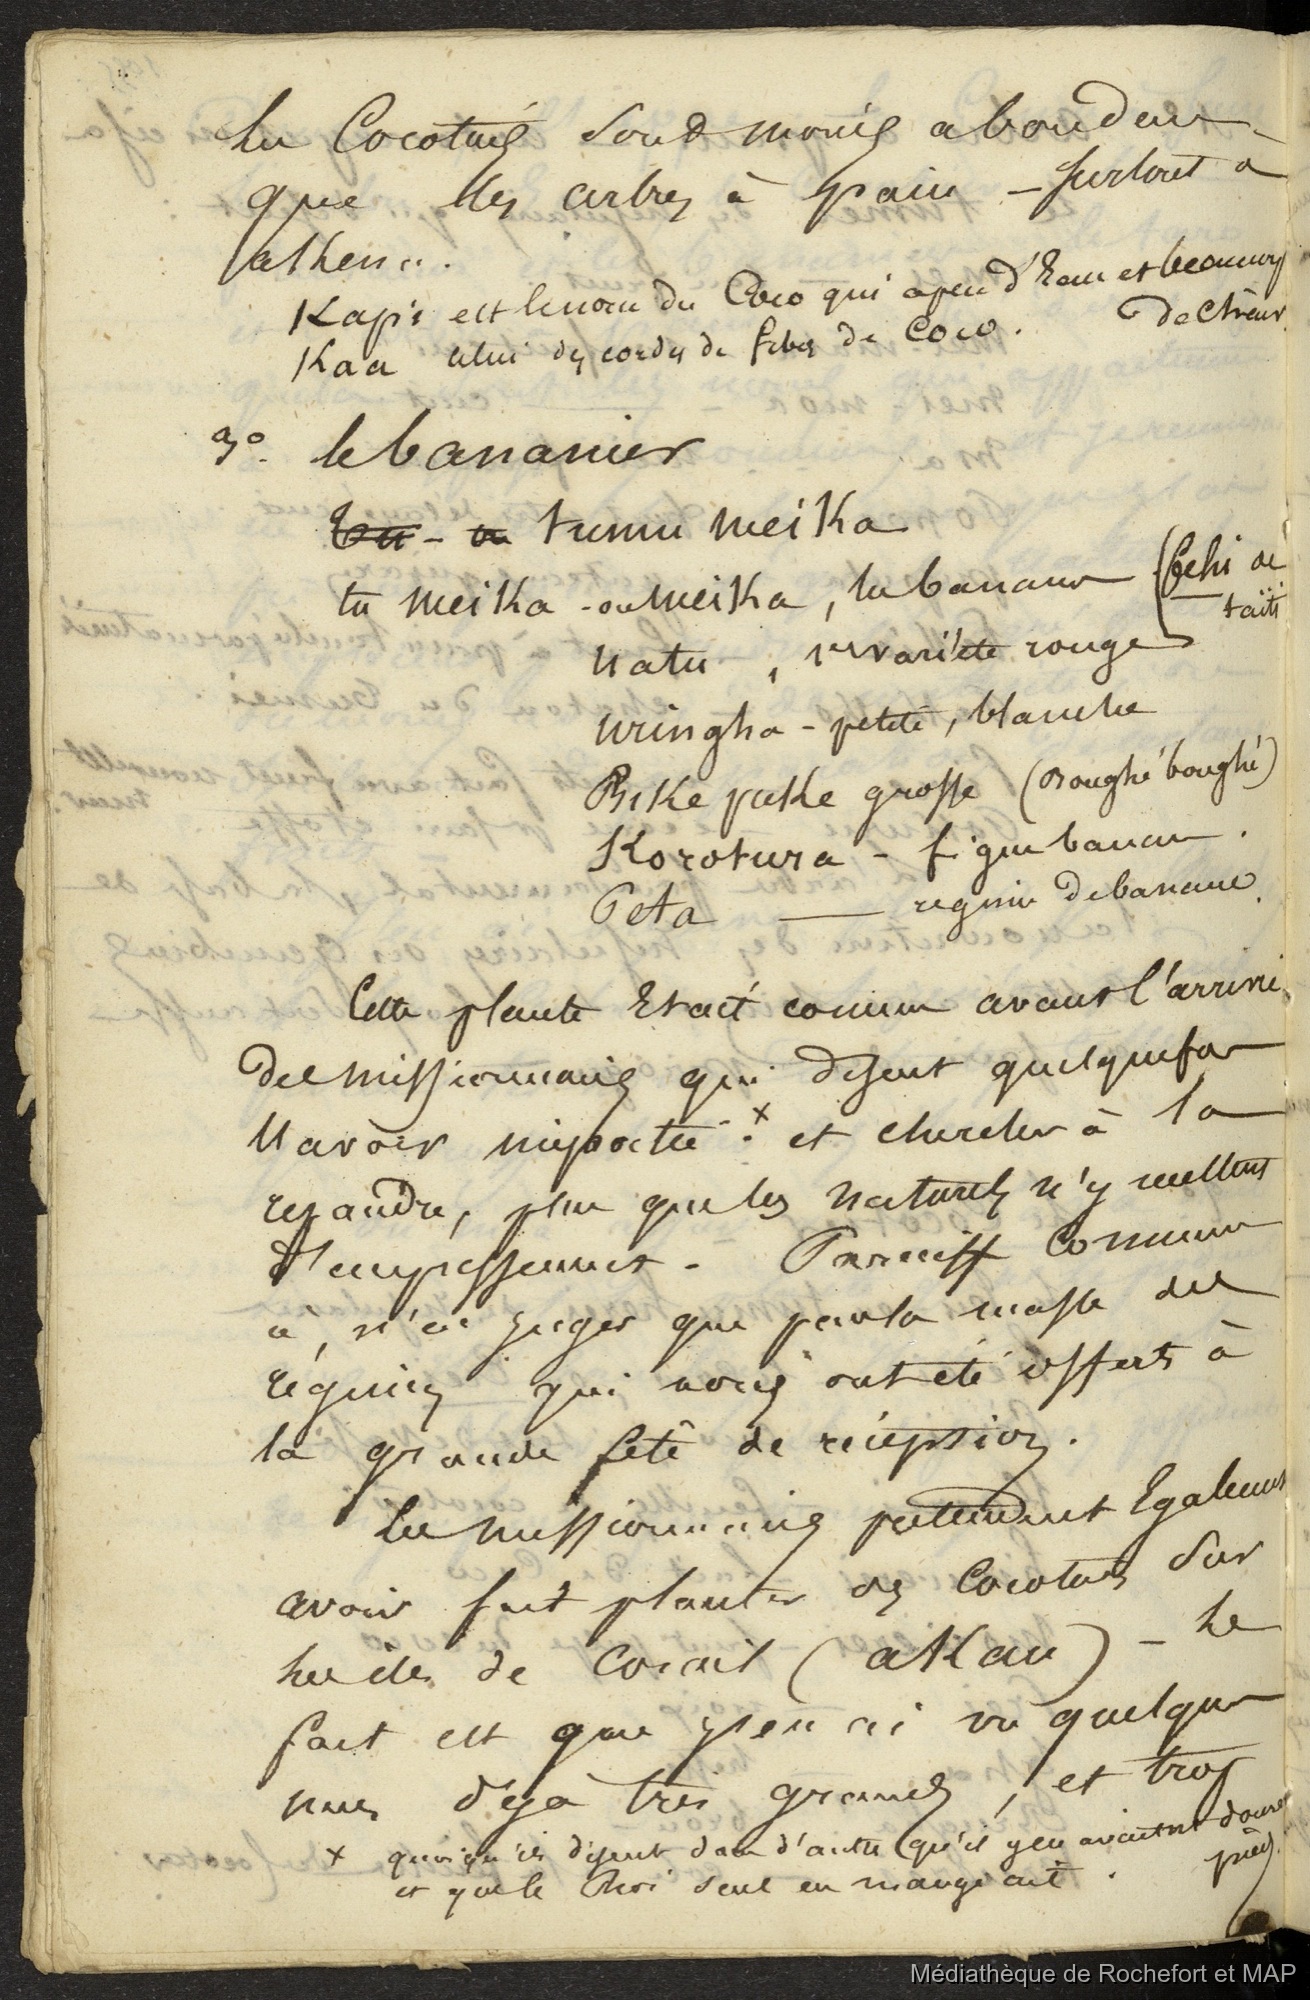 les Cocotiers sont moins abondans
que les arbres à pain – surtout à
Kapi est le nom du Coco qui a peu d'Eau et beaucoup
de Chair.
Kaa celui des cordes de fibres de Coco.
3o. le bananier
tumu meika
tu meika - ou meika, la banane (fehi de
taïti
Natu, variété rouge
uringha - petite, blanche
puke grosse
Korotura - figue banane.
Peta — regime de banane.
Cette plante Etait commune avant l'arrivée
des missionnaires qui disent quelquefois
l'avoir importée x et chercher à la
repandre, plus que les naturels n'y mettent
d'empressement. Commune
à n'en juger que par la masse des
régimes qui nous ont été offerts à
la grande fête de réception.
les missionnaires pretendent Egalement
avoir fait planter des Cocotiers sur
les iles de Corail (aKau) – le
fait est que j'en ai vu quelques
uns déjà très grands, et trop
x quoiqu'ils disent dans d'autres (qu'il y en avait
et que le Roi seul en mangeait.
Médiathèque de Rochefort et MAP